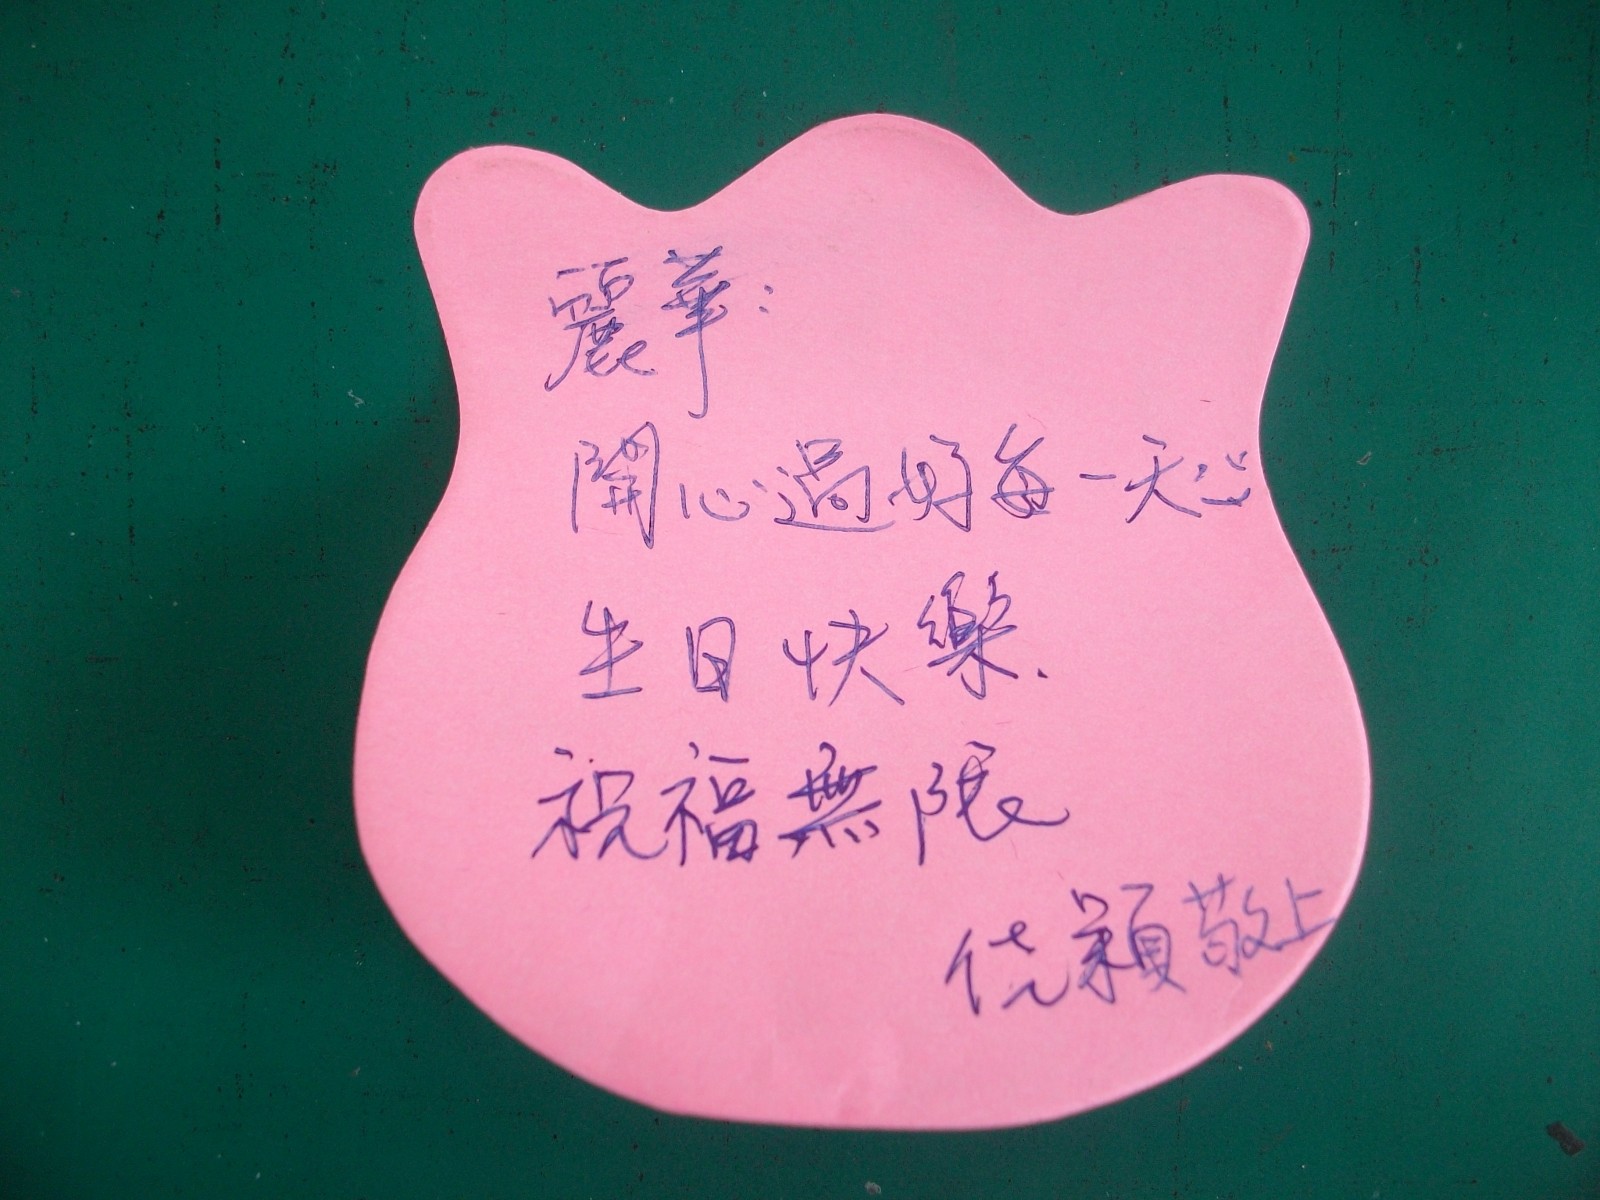 麗華：
開心過好每一天
生日快樂.
祝福無限
穎敬上